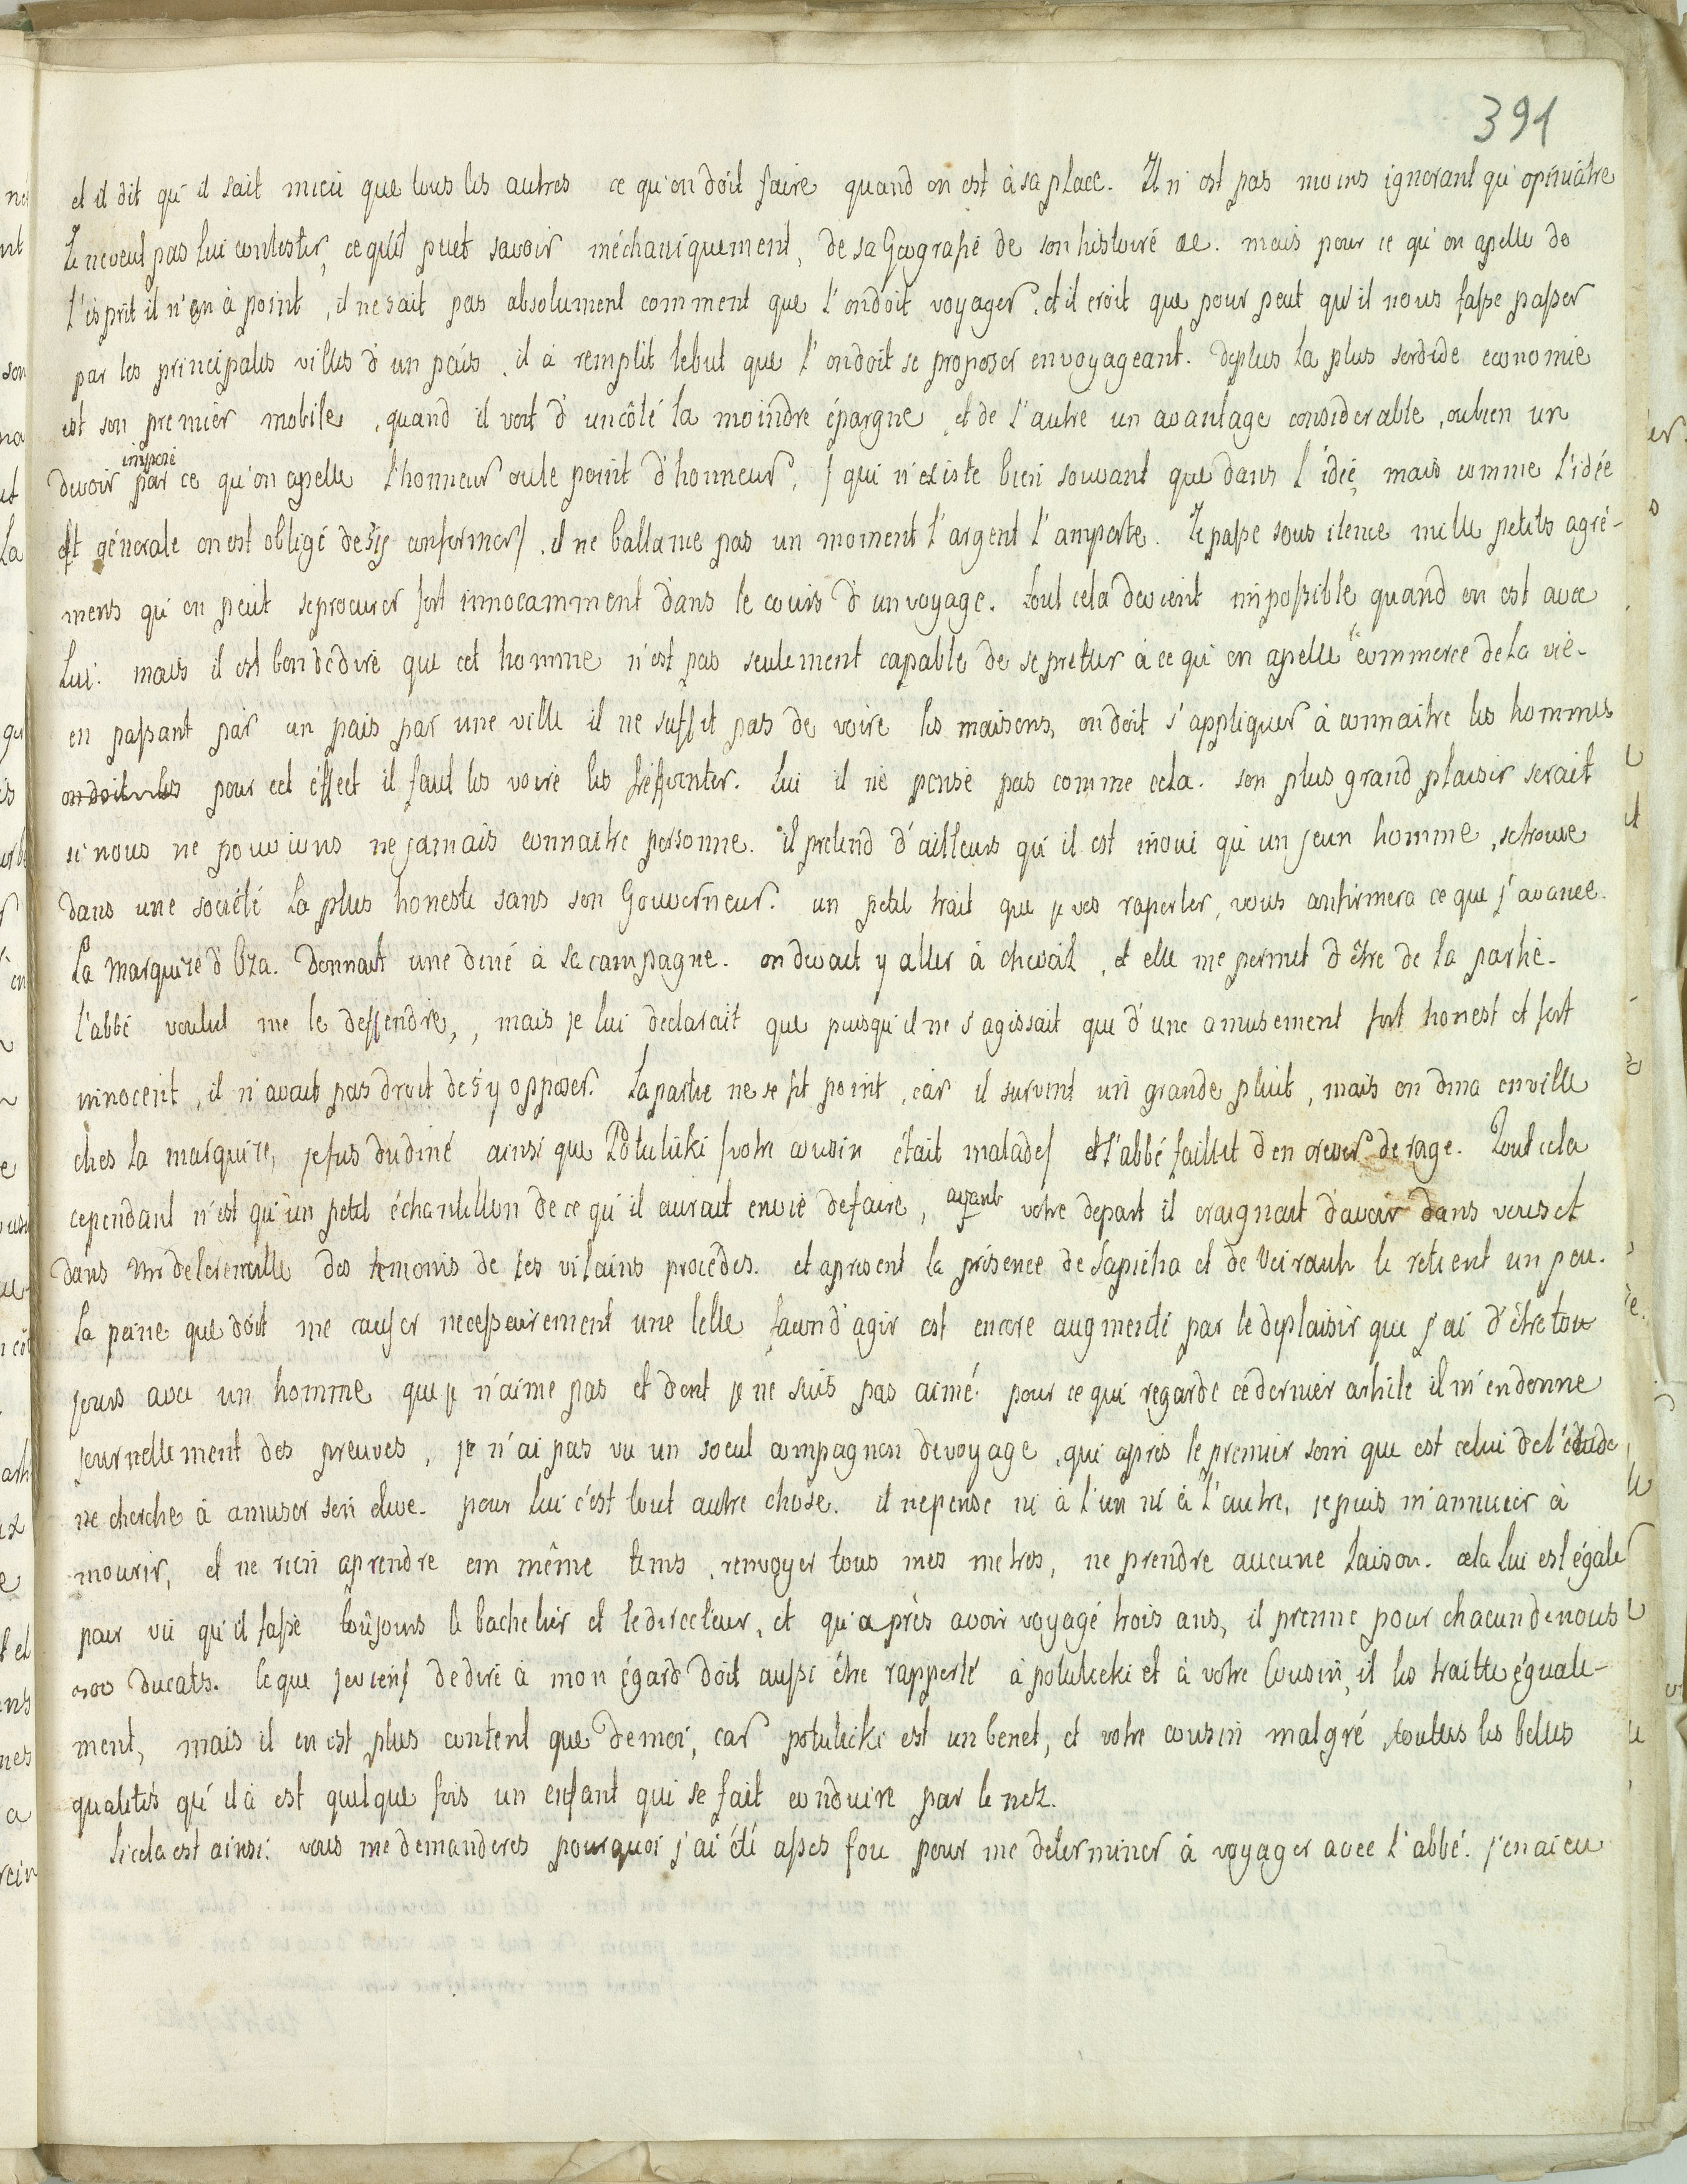 391
et il dit qu'il sait mieu que tous les autres ce qu'on doit faire quand on est à sa place. Il n'est pas moins ignorant qu'opiniâtre
Je ne veut pas lui contester, ce qu'il puet savoir méchaniquement, de sa Geografie de son histoire &c. mais pour ce qu'on apelle de
l'esprit il n'en à point, il ne sait pas absolument comment que l'on doit voyager, et il croit que pour peut qu'il nous fasse passer
par les principales villes d'un païs, il à remplit le but que l'on doit se proposer en voyageant. deplus la plus sordide economie
est son premier mobile, quand il voit d'un côté la moindre épargne, et de l'autre un avantage considerable, ou bien un
devoir imposé par ce qu'on apelle l'honneur ou le point d'honneur, / qui n'existe bien souvant que dans l'idée, mais comme l'idée
est génerale on est obligé de s'y conformer/. il ne ballance pas un moment l'argent l'amporte. Je passe sous ilence mille petits agré-
mens qu'on peut se procurer fort innocamment dans le cours d'un voyage. tout cela devient impossible quand on est avec
Lui. mais il est bon de dire que cet homme n'est pas seulement capable de se preter à ce qu'on apelle le commerce de la vie.
en passant par un pais par une ville il ne suffit pas de voire les maisons, on doit s'appliquer à connaitre les hommes
on doit les pour cet éffect il faut les voire les fréquenter. Lui il ne pense pas comme cela. son plus grand plaisir serait
si nous ne pouvions ne jamais connaitre personne. il pretend d'ailleurs qu'il est inoui qu'un jeun homme, se trouve
dans une societé la plus honeste sans son Gouverneur. un petit trait que je ves raporter, vous anfirmera ce que j'avance.
La Marquize d'Oza. donnait une diné à sa campagne. on devait y aller à cheval, et elle me permit d'être de la partie.
l'abbé voulut me le deffendre,, mais je lui declarait que puisqu'il ne s'agissait que d'une amusement fort honest et fort
innocent, il n'avait pas droit de s'y opposer. La partie ne se fit point, car il survint un grande pluit, mais on dina en ville
ches la marquize, je fus du diné ainsi que Potulicki /votre cousin était malade/ et l'abbé faillit d'en crever de rage. Tout cela
cependant n'est qu'un petit échantillon de ce qu'il aurait envie de faire, avant votre depart il craignait d'avoir dans vous et
dans Mr de des temonis de ses vilains procédes. et apresent la présence de Sapieha et de le retient un peu.
La peine que doit me causer necessairement une telle facon d'agir est encore augmenté par le deplaisir que j'ai d'être tou
jours avec un homme que je n'aime pas et dont je ne suis pas aimé. pour ce qui regarde ce dernier artile il m'en donne
journellement des preuves, je n'ai pas vu un soeul compagnon de voyage, qui après le premier soin que est celui de l'étude,
ne cherche à amuser son elive. pour lui c'est tout autre chose. il ne pense ni à l'un ni à l'autre, je puis m'annuier à
mourir, et ne rien aprendre em même tems, renvoyer tous mes metres, ne prendre aucune laison. cela lui est égale
pour vu qu'il fasse toûjours le bachelier et le directeur, et qu'après avoir voyagé trois ans, il prenne pour chacun de nous
ducats. Ce que je viens de dire à mon égard doit aussi être rapporté à potulicki et à votre Cousin, il les traitte éguale-
ment, mais il en est plus content que de moi, car potulicki est un benet, et votre cousin malgré toutes les belles
qualites qu'il à est quelque fois un enfant qui se fait conduire par le nez.
Si cela est ainsi. vous me demanderes pourquoi j'ai été asses fou pour me determiner à voyager avec l'abbé. j'en ai eu